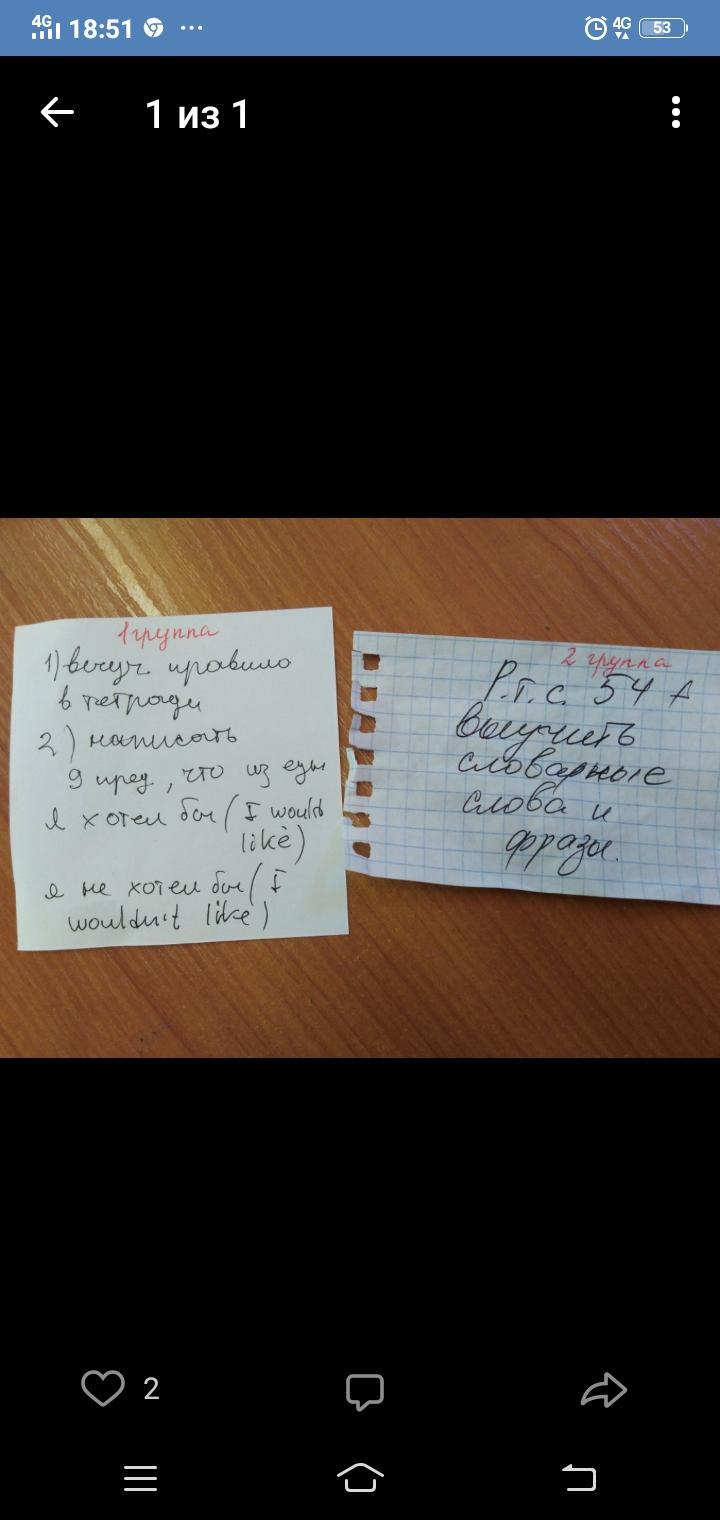 4G 18:51 ... 4G 53
1 из 1
1 группа
1) выуч. правило
в тетради
2) написать
9 пред., что из еды
я хотел бы (I would
like)
я не хотел бы (I
wouldn't like)
2 группа
Р.т. с. 54 А
Выучить
словарные
слова и
фразы.
2